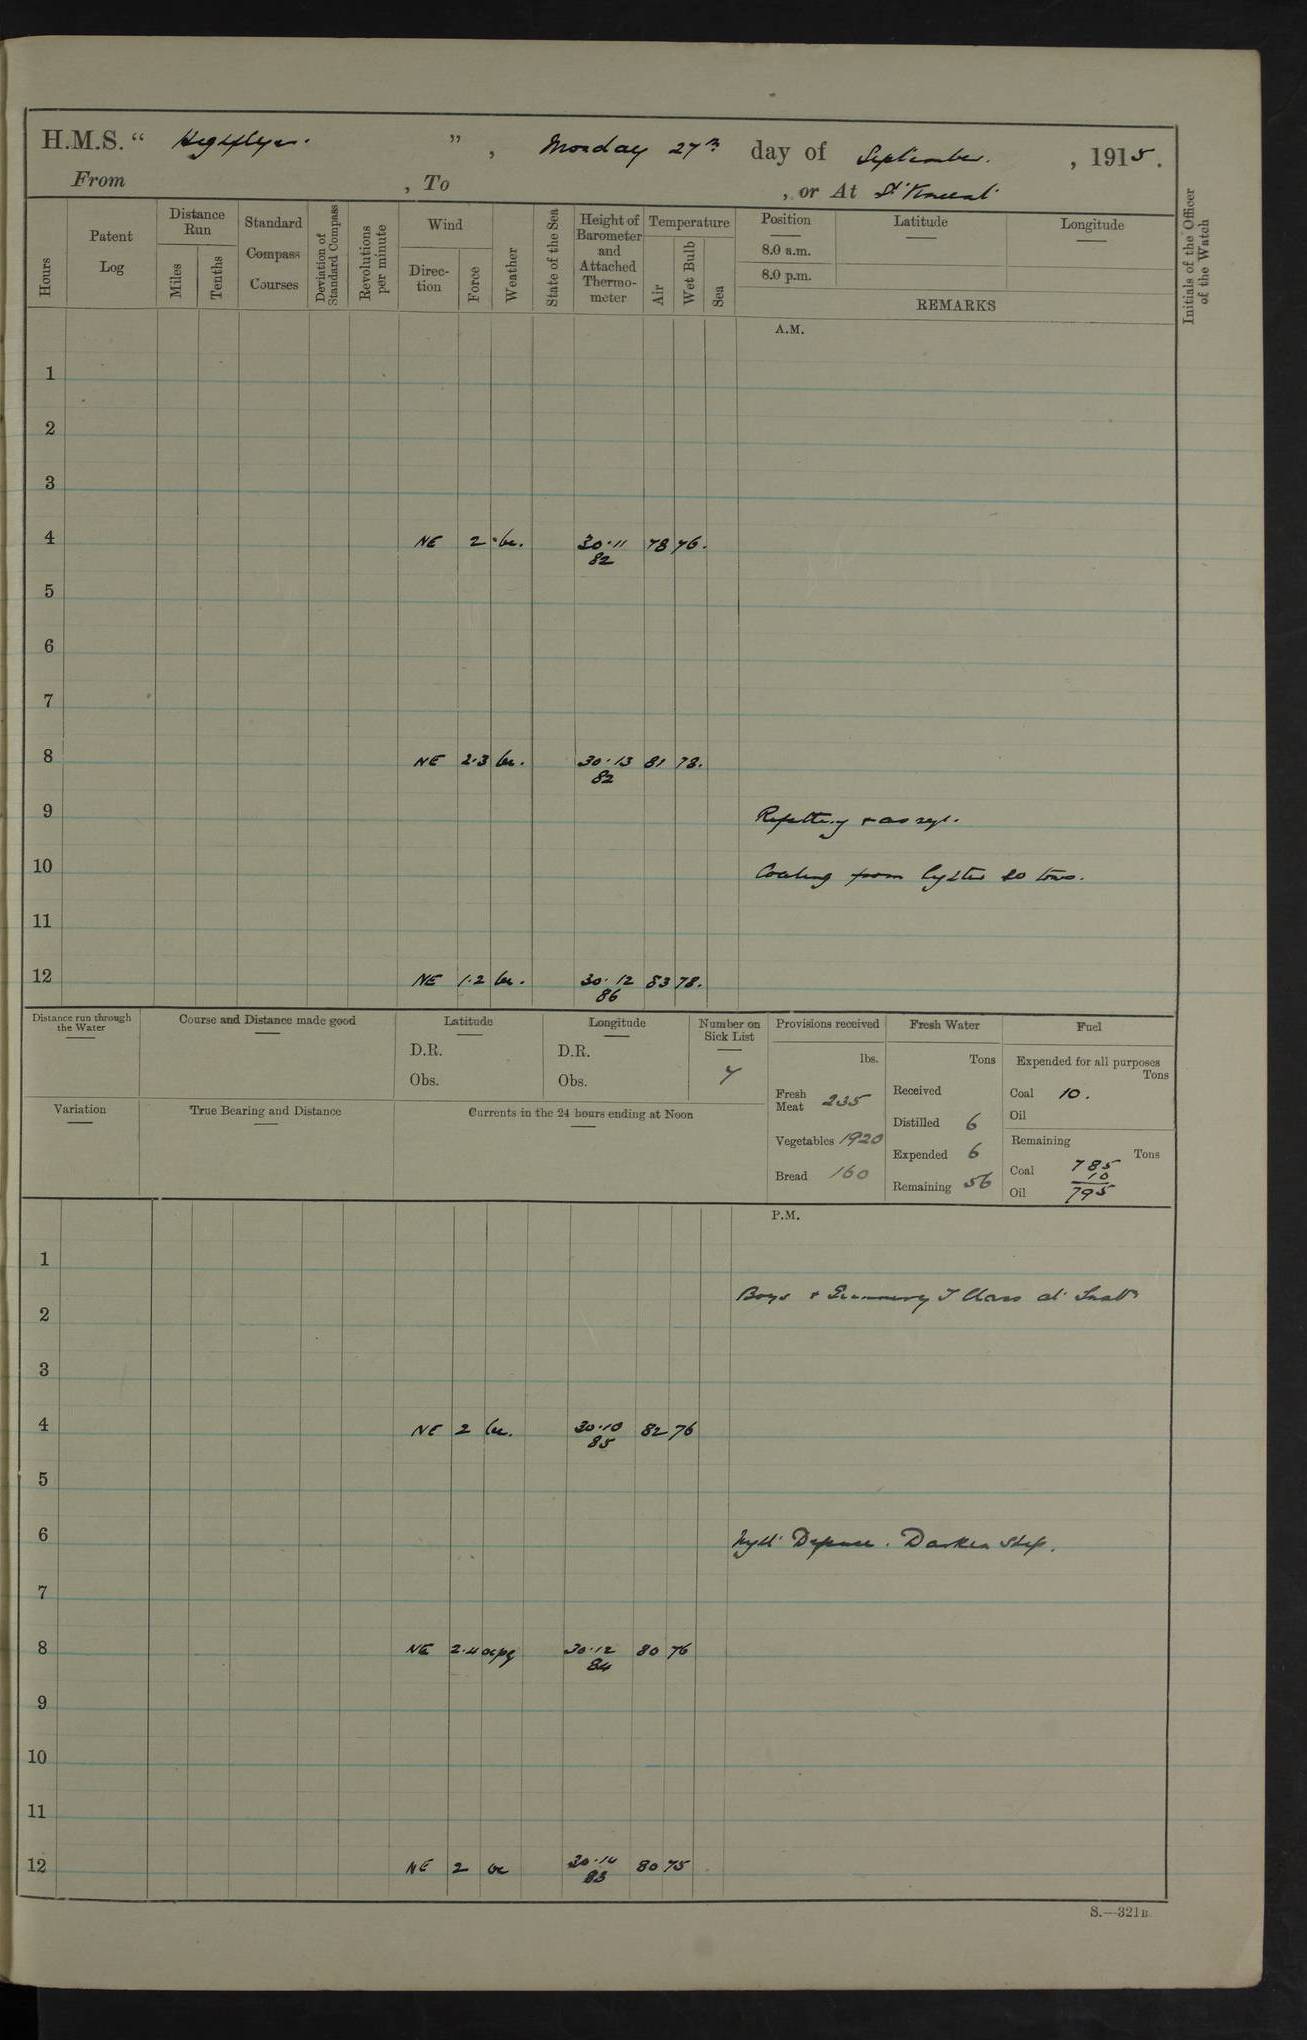 H.M.S. “ Highflyer. ” , Monday 27th day of September. , 1915.
From , To , or At St Vincent
Hours
Patent Log
Distance Run
Miles
Tenths
Standard Compass Courses
Deviation of Standard Compass
Revolutions per minute
Wind
Direc-tion
Force
Weather
State of the Sea
Height of Barometer and Attached Thermo-meter
Temperature
Air
Wet Bulb
Sea
Position
8.0 a.m.
8.0 p.m.
Latitude
Longitude
REMARKS
Initials of the Officer of the Watch
A.M.
1
2
3
4 NE 2 bc. 30.11 78 76.
82
5
6
7
8 NE 2.3 bc. 30.13 81 78.
82
9 Refitting & as req.
10 Coaling from lighter 20 tons.
11
12 NE 1.2 bc. 30.12 83 78.
86
Distance run through the Water
Course and Distance made good
Latitude
D.R.
Obs.
Longitude
D.R.
Obs.
Number on Sick List
7
Provisions received
lbs.
Fresh Meat 235
Vegetables 1920
Bread 160
Fresh Water
Tons
Received
Distilled 6
Expended 6
Remaining 56
Fuel
Expended for all purposes
Tons
Coal 10.
Oil
Remaining
Tons
Coal 785
10
Oil 795
Variation
True Bearing and Distance
Currents in the 24 hours ending at Noon
P.M.
1
Boys & Class at
2
3
4 NE 2 bc. 30.10 82 76
85
5
6 Night Defence. Darken Ship.
7
8 NE 2.4 ocpq 30.12 80 76
84
9
10
11
12 NE 2 bc 30.14 80 75
83
S.—321B.